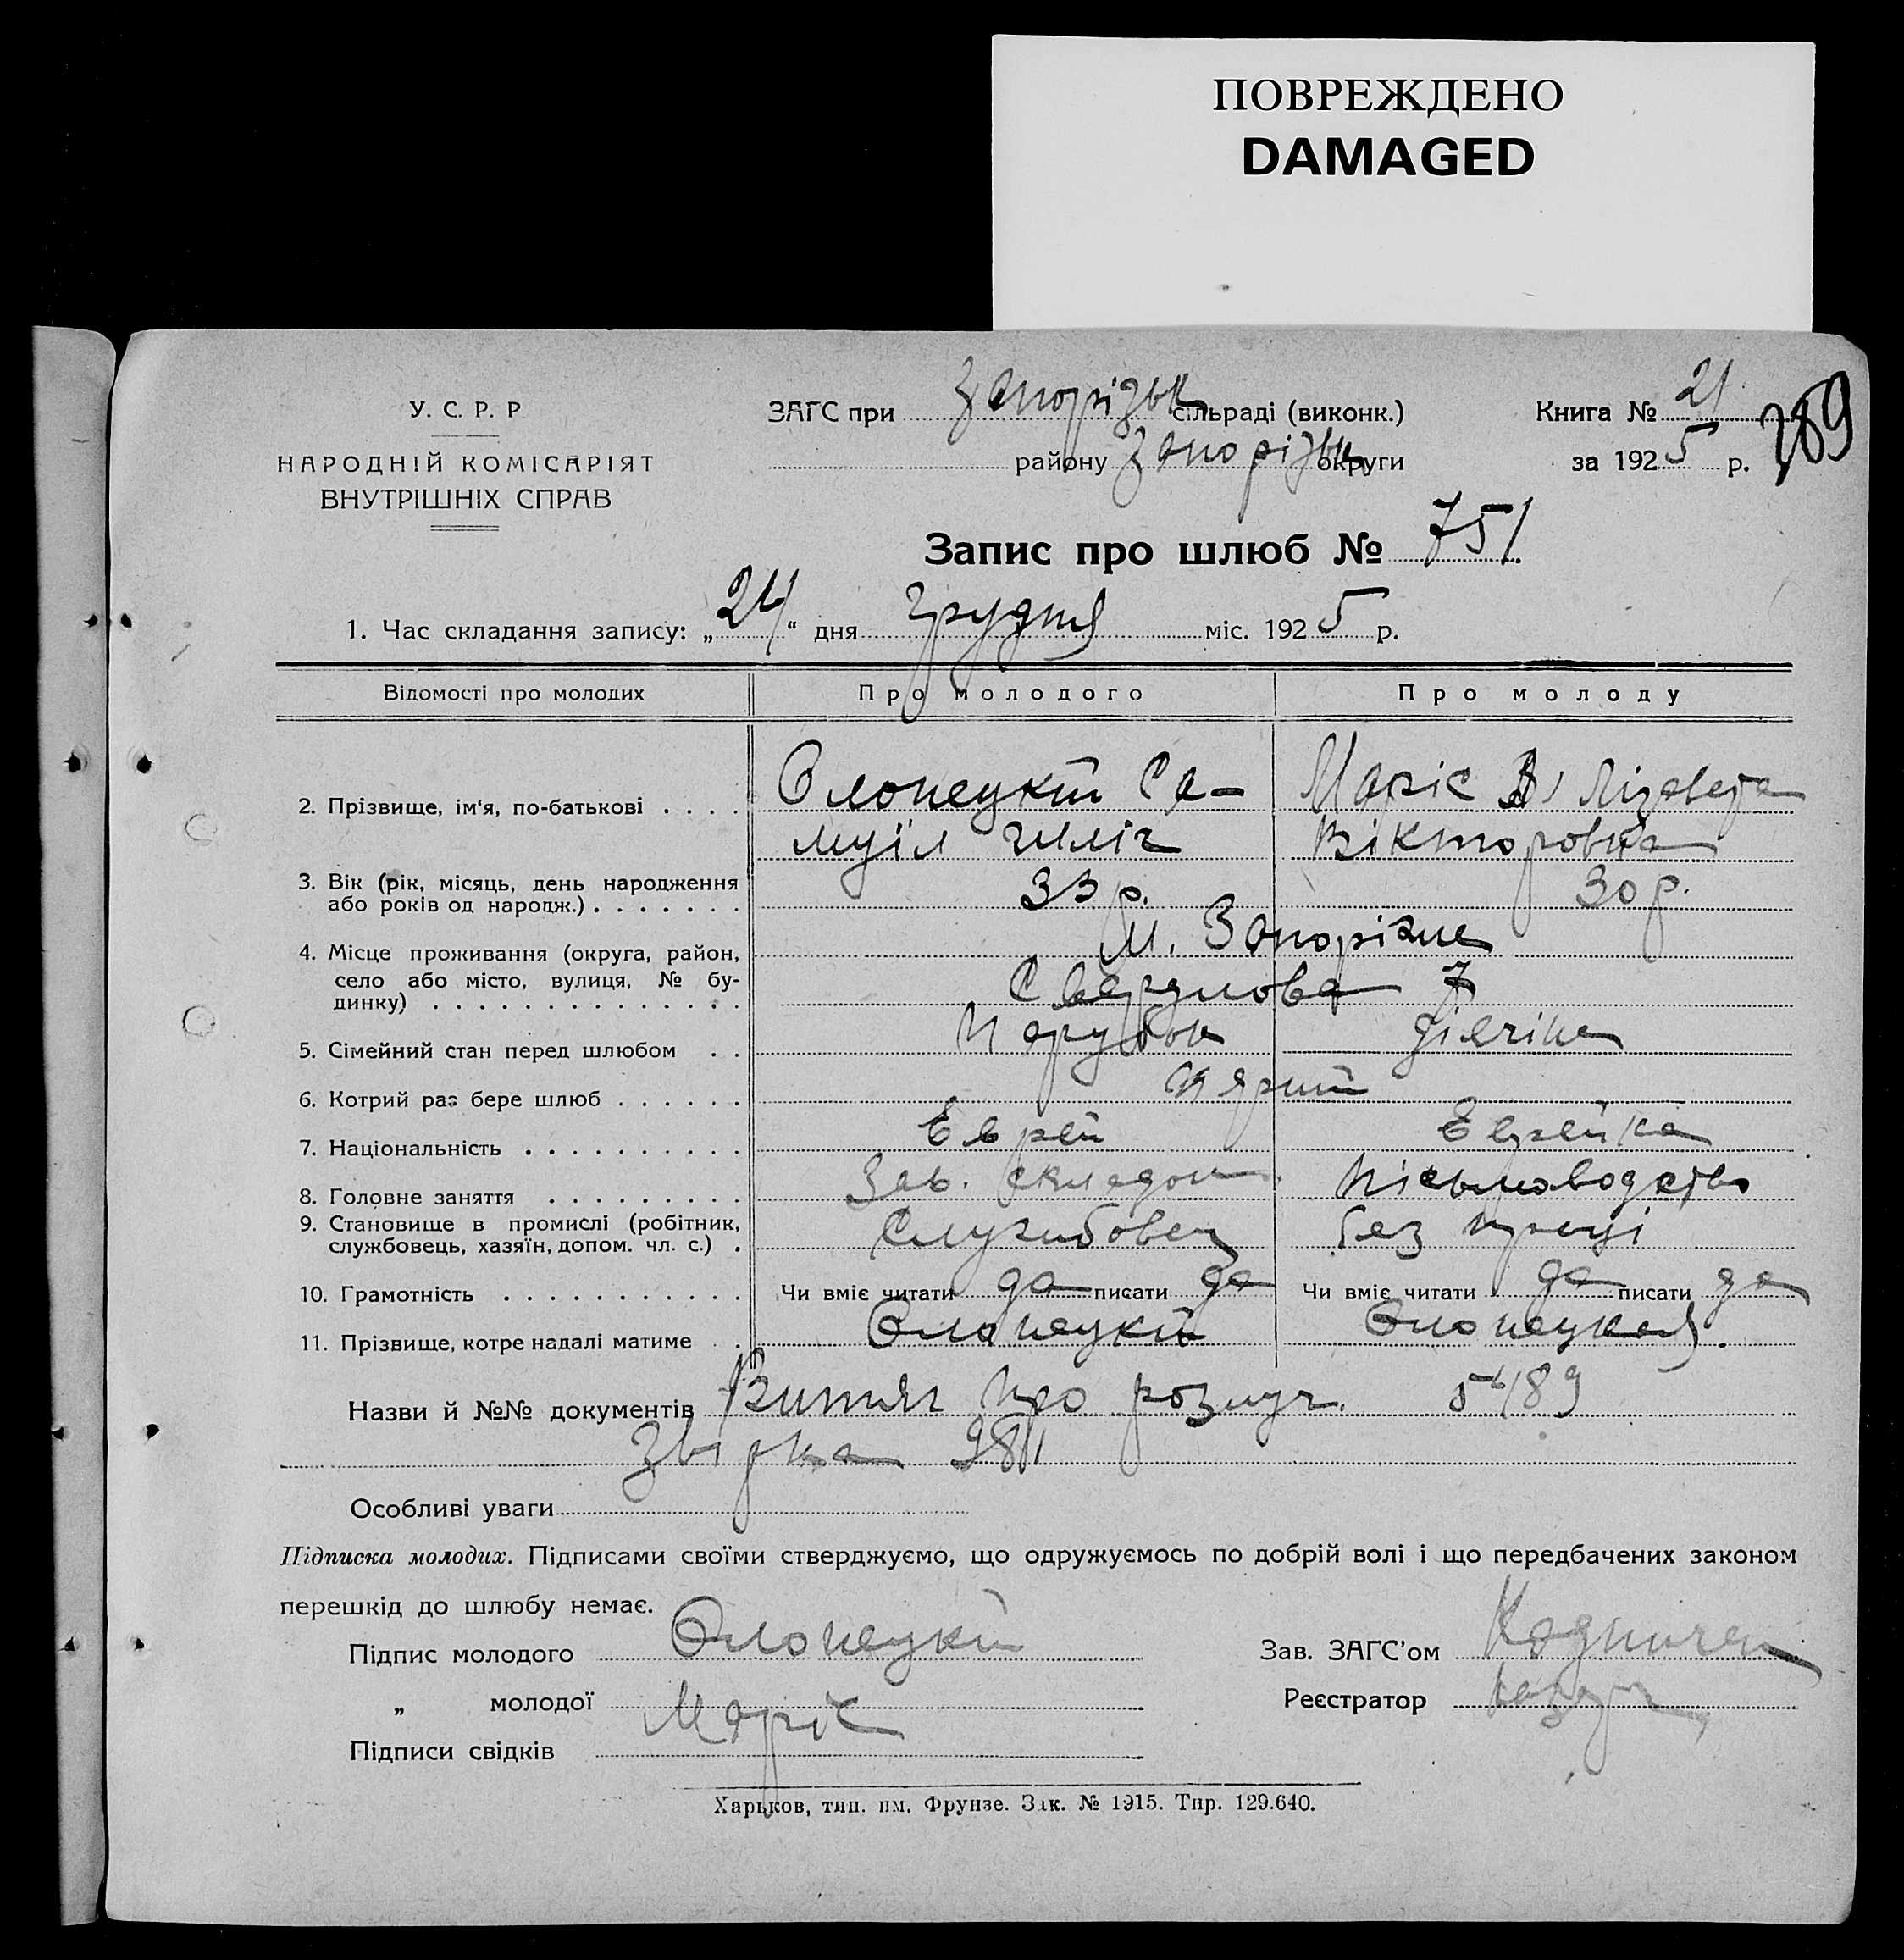 ПОВРЕЖДЕНО
DAMAGED
У. С. Р. Р
НАРОДНІЙ КОМІСАРІЯТ
ВНУТРІШНІХ СПРАВ
ЗАГС при Запорізьк сільраді (виконк.)
району Запорізьк округи
Книга № 21
за 1925 р.
289
Запис про шлюб № 751
1. Час складання запису: „24“ дня грудня міс. 1925 р.
Відомості про молодих Про молодого Про молоду
2. Прізвище, ім'я, по-батькові . . . . Олонецкій Са- Маріс Лізавета
муїл Ілліч Вікторовна
3. Вік (рік, місяць, день народження
або років од народж.) . . . . . . . 33 р. 30 р.
4. Місце проживання (округа, район, м. Запоріжже
село або місто, вулиця, № бу-
динку) . . . . . . . . . . . . . . Свердлова 7
5. Сімейний стан перед шлюбом . . Парубок дівчіна
6. Котрий раз бере шлюб . . . . . .
7. Національність . . . . . . . . . . Еврей Еврейка
8. Головне заняття . . . . . . . . . Зав. складом Пісьмоводство
9. Становище в промислі (робітник,
службовець, хазяїн, допом. чл. с.) . Службовец без праці
10. Грамотність . . . . . . . . . . . Чи вміє читати да писати да Чи вміє читати да писати да
11. Прізвище, котре надалі матиме . . Олонецкій Олонецкая.
Назви й №№ документів Витяг про розлуч. 189
Звірка
Особливі уваги
Підписка молодих. Підписами своїми стверджуємо, що одружуємось по добрій волі і що передбачених законом
перешкід до шлюбу немає.
Підпис молодого Олонецкій
Зав. ЗАГС'ом
„ молодої Маріс
Реєстратор
Підписи свідків
Харьков, тип. им. Фрунзе. Зак. № 1915. Тир. 129.640.